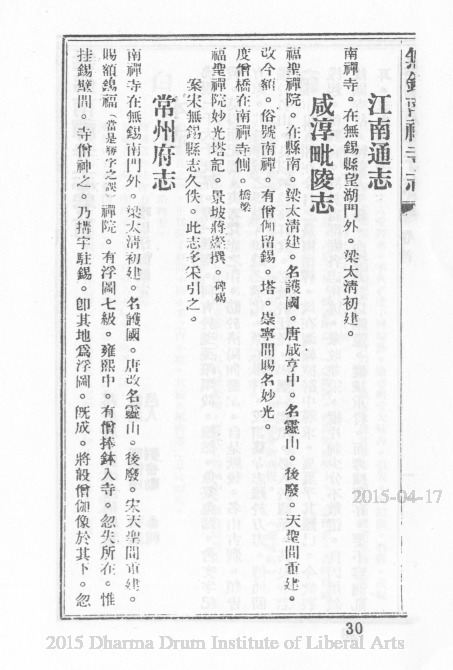 無錫南禪寺志
江南通志
南禪寺。在無錫縣望湖門外。梁太清初建。
咸淳毗陵志
福聖禪院。在縣南。梁太清建。名護國。唐咸亨中。名靈山。後廢。天聖間重建。
改今額。俗號南禪。有僧伽留錫。塔。崇寧間賜名妙光。
度僧橋在南禪寺側。橋梁
福聖禪院妙光塔記。景坡蔣㻞撰。碑碣
案宋無錫縣志久佚。此志多采引之。
常州府志
南禪寺在無錫南門外。梁太清初建。名護國。唐改名靈山。後廢。宋天聖間重建。
賜額鎢福(當是聖字之誤)禪院。有浮圖七級。雍熙中。有僧捧鉢入寺。忽失所在。惟
挂錫壁間。寺僧神之。乃搆宇駐錫。卽其地爲浮圖。旣成。將設僧伽像於其下。忽
30
2015-04-17
2015 Dharma Drum Institute of Liberal Arts